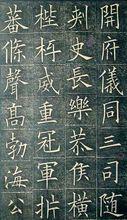 開府儀同三司随
刺史長樂恭侯横
梐枑威重冠軍析
蕃條聲高勃海公